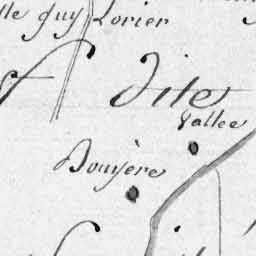 lle guy Lorier
dite
Vallee
Bouyère